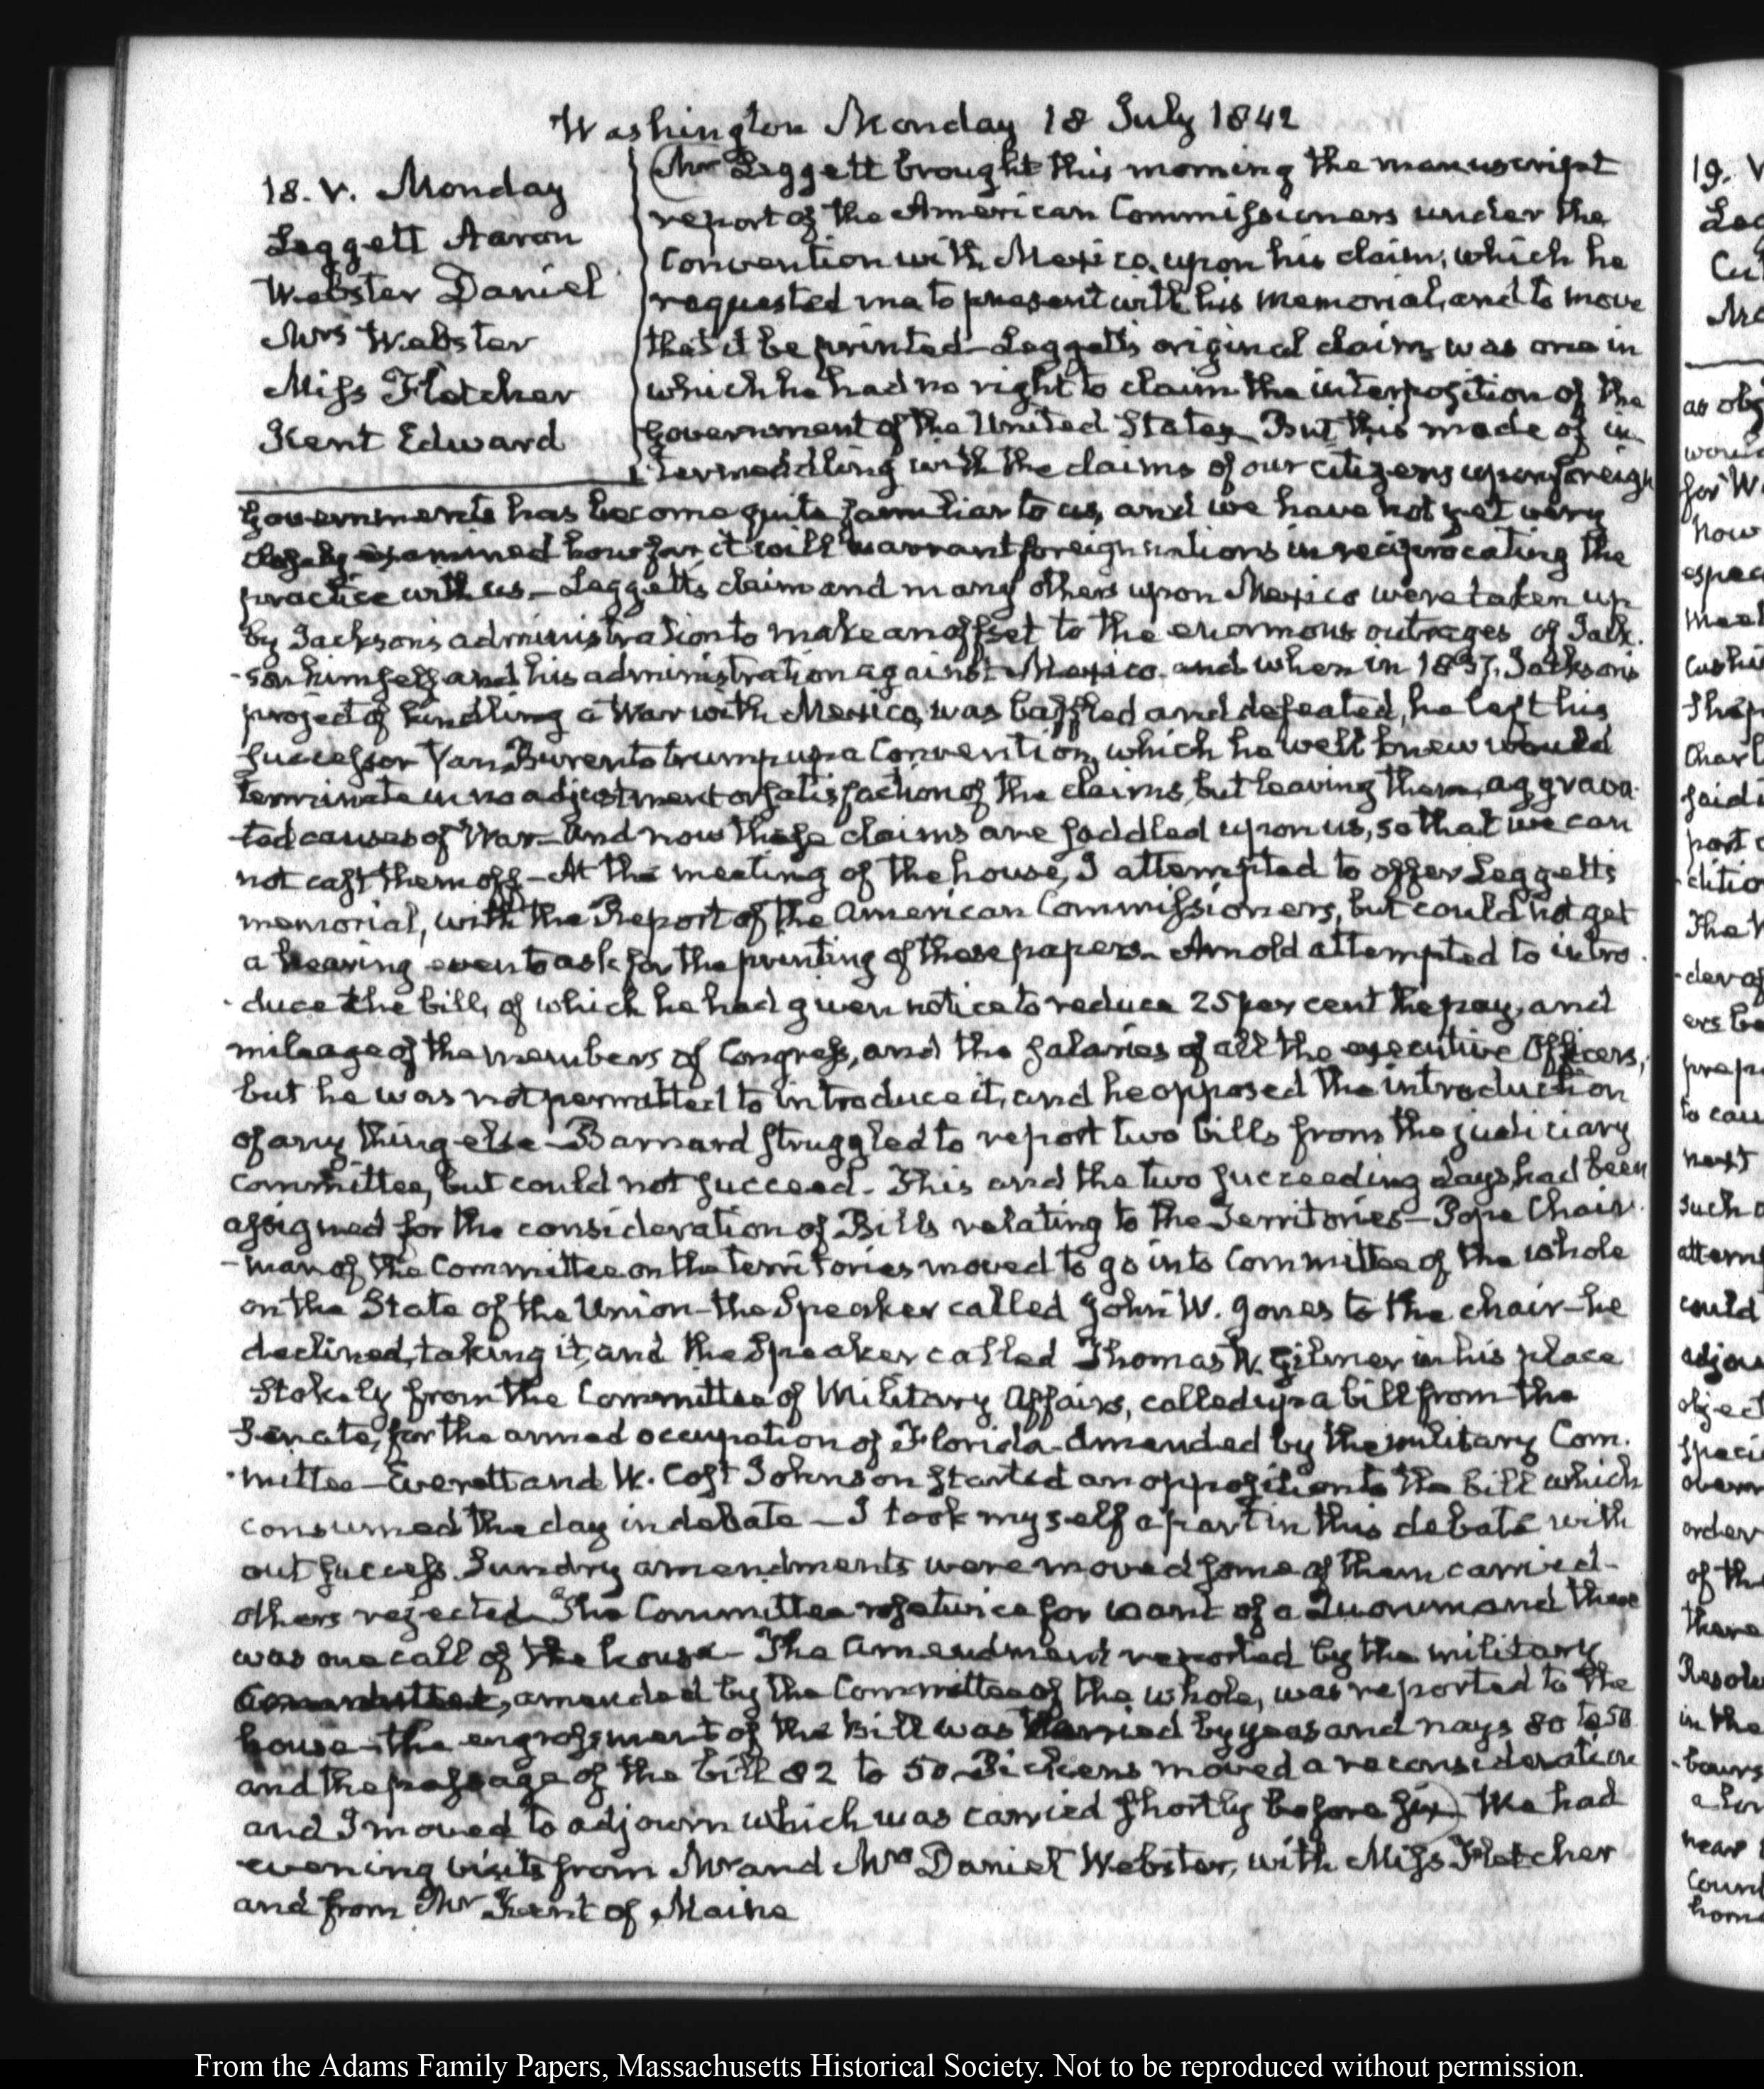 Washington Monday 18 July 1842
18. V. Monday
Leggett Aaron
Webster Daniel
Mrs Webster
Miss Fletcher
Kent Edward
Mr Leggett brought this morning the manuscript
report of the American Commissioners under the
Convention with Mexico, upon his claim, which he
requested me to present with his memorial, and to move
that it be printed— Leggett's original claim was one in
which he had no right to claim the interposition of the
Government of the United States— But this mode of in
termeddling with the claims of our citizens upon foreign
Governments has become quite familiar to us, and we have not yet very
closely examined how far it will warrant foreign nations in reciprocating the
practice with us.— Leggett's claim and many others upon Mexico were taken up
by Jackson's administration to make an offset to the enormous outrages of Jack-
-son himself and his administration against Mexico. and when in 1837. Jackson's
project of kindling a War with Mexico, was baffled and defeated, he left his
successor Van Buren to trump up a Convention, which he well knew would
terminate in no adjustment or satisfaction of the claims, but leaving them, aggrava-
-ted causes of War— And now these claims are saddled upon us, so that we can
not cast them off— At the meeting of the house, I attempted to offer Leggett's
memorial, with the Report of the American Commissioners, but could not get
a hearing even to ask for the printing of these papers— Arnold attempted to intro-
-duce the bill, of which he had given notice to reduce 25 per cent the pay, and
mileage of the members of Congress, and the salaries of all the executive Officers,
but he was not permitted to introduce it, and he opposed the introduction
of any thing else— Barnard struggled to report two bills from the judiciary
Committee, but could not succeed. This and the two succeeding days, had been
assigned for the consideration of Bills relating to the Territories— Pope Chair-
-man of the Committee on the Territories moved to go into Committee of the whole
on the State of the Union— the Speaker called John W. Jones to the chair— he
declined, taking it, and the Speaker called Thomas W. Gilmer in his place
Stokely from the Committee of Military Affairs, called up a bill from the
Senate, for the armed occupation of Florida— Amended by the military Com-
-mittee— Everett and W. Cost Johnson started an opposition to the bill which
consumed the day in debate— I took myself a part in this debate with
out success. Sundry amendments were moved some of them carried—
others rejected— The Committee rose twice for want of a Quorum and there
was one call of the house— The Amendment reported by the military
Committee, amended by the Committee of the whole, was reported to the
house— the engrossment of the Bill was carried by yeas and nays 80 to 50
and the passage of the bill 82 to 50— Pickens moved a reconsideration
and I moved to adjourn which was carried shortly before six) We had
evening visits from Mr and Mrs Daniel Webster, with Miss Fletcher
and from Mr Kent of Maine
From the Adams Family Papers, Massachusetts Historical Society. Not to be reproduced without permission.